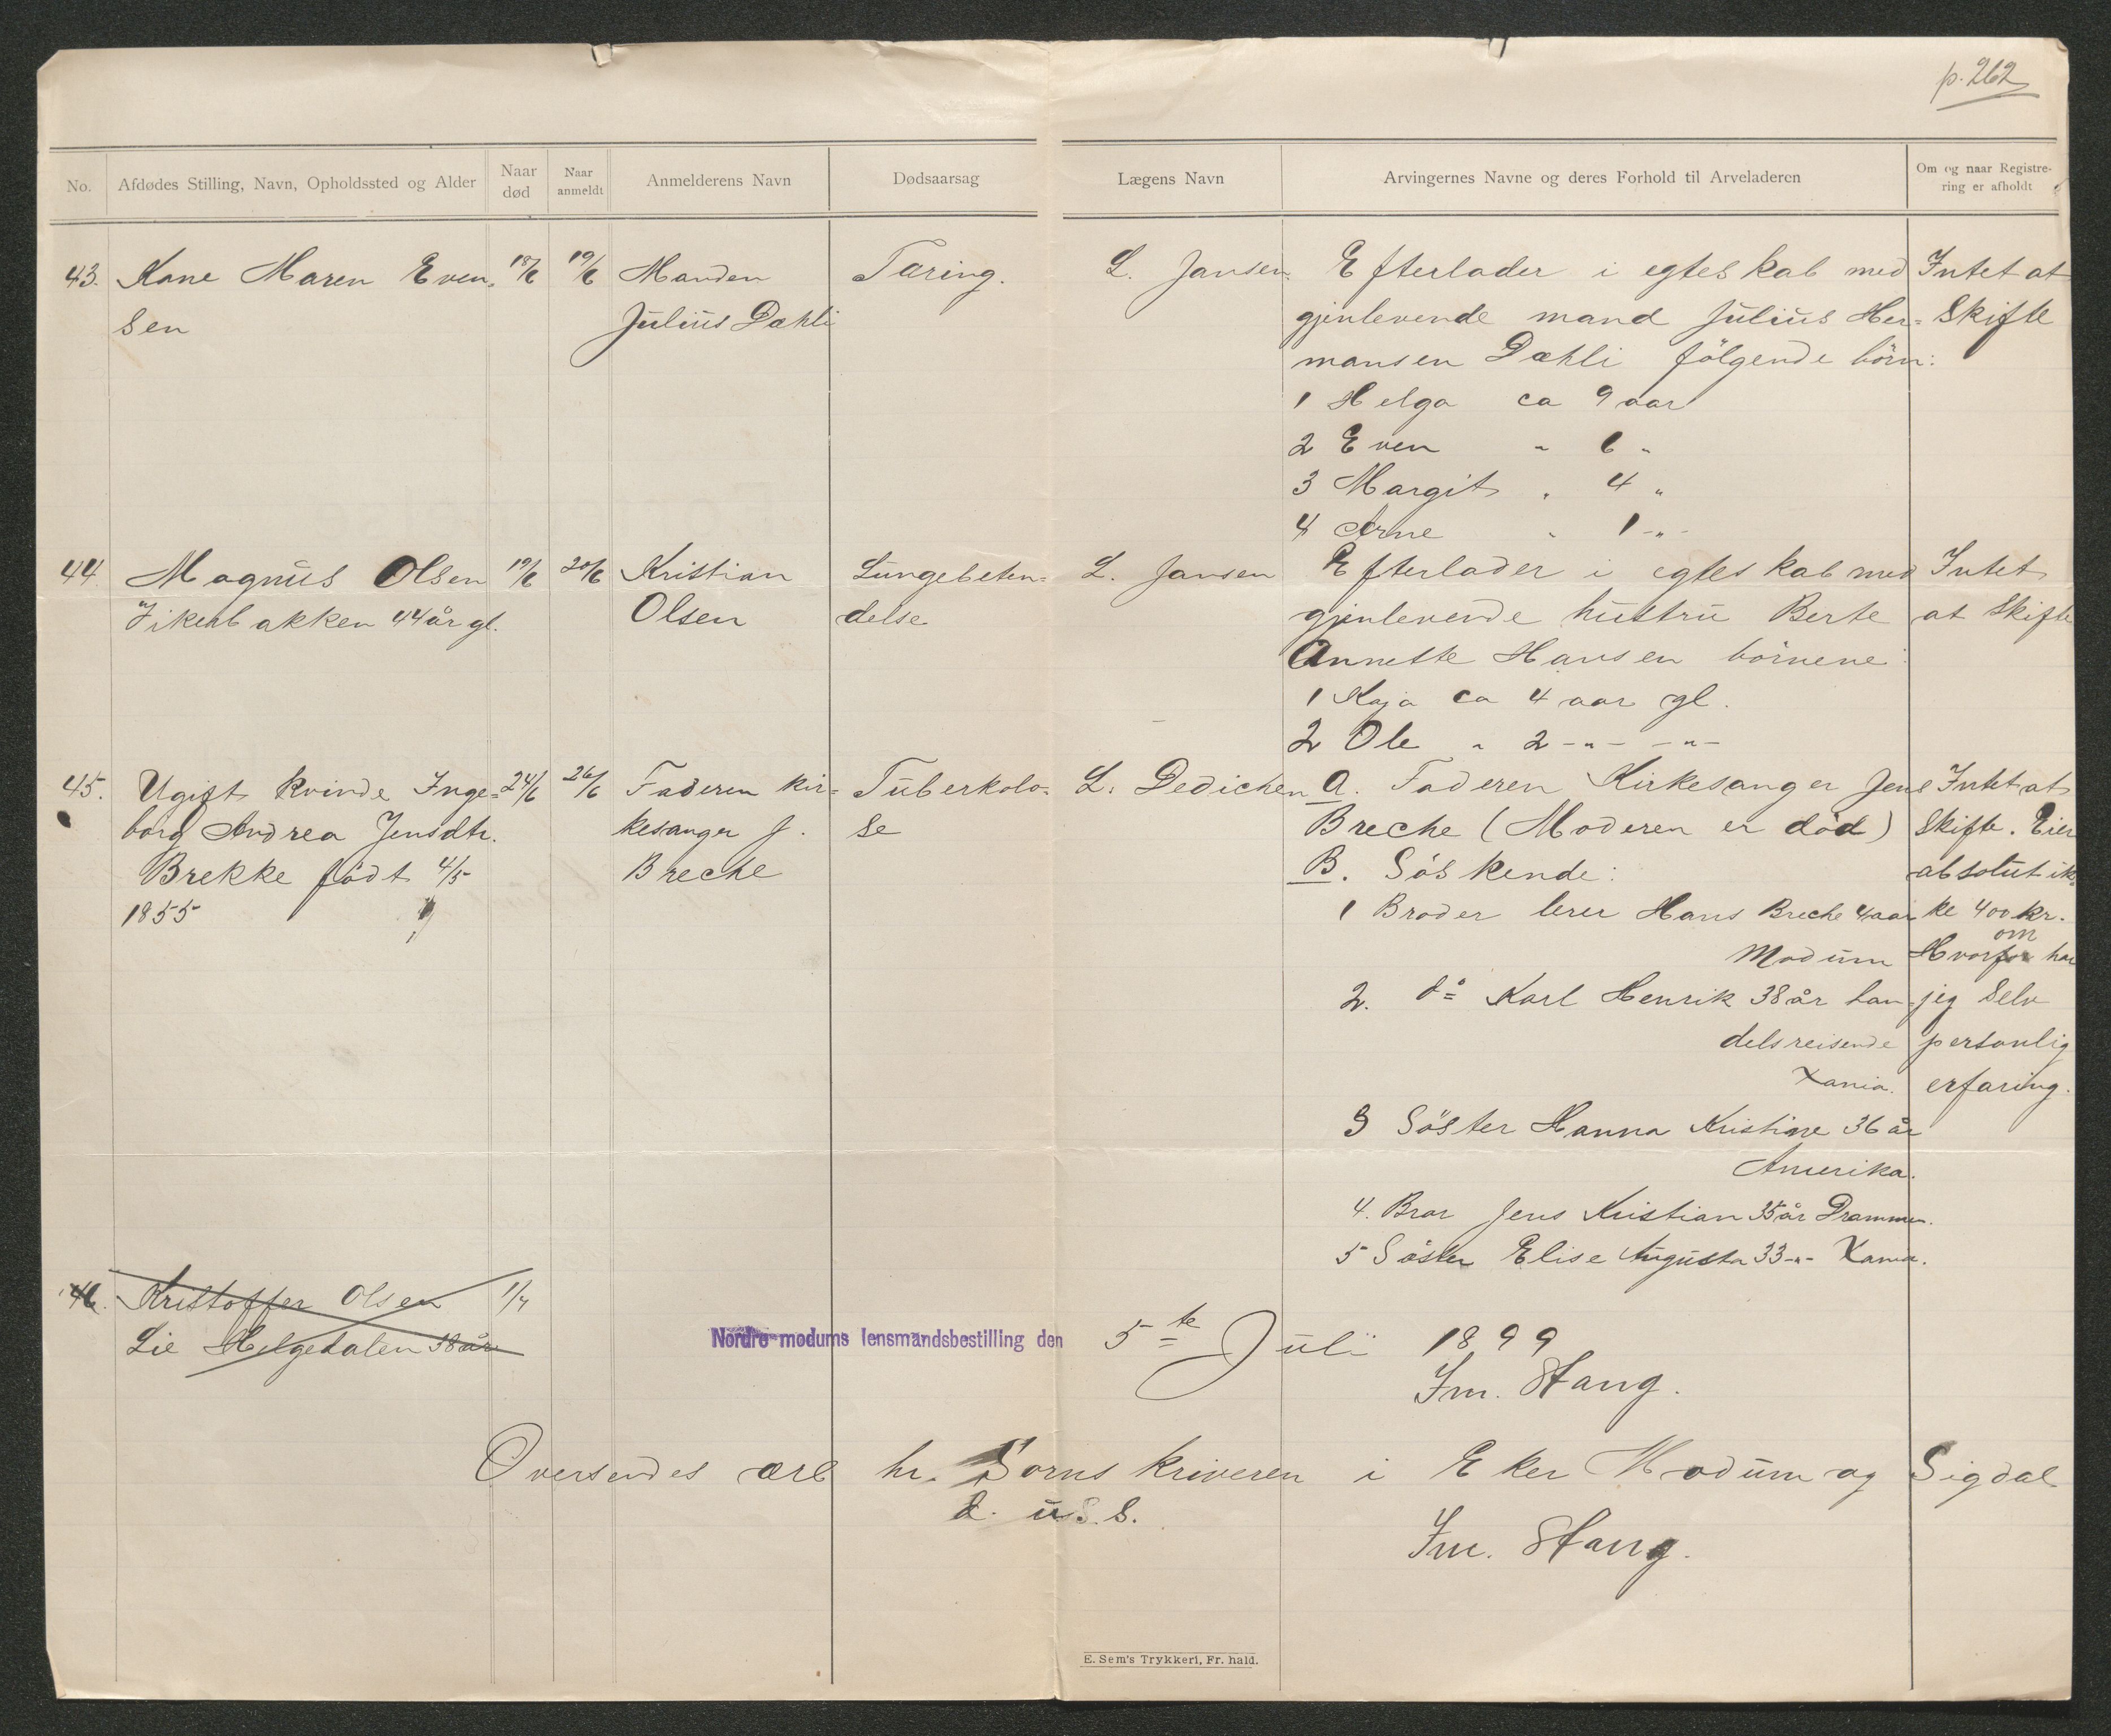 p. 262
No. Afdødes Stilling, Navn, Opholdssted og Alder Naar død Naar anmeldt Anmelderens Navn Dødsaarsag Lægens Navn Arvingernes Navne og deres Forhold til Arveladeren Om og naar Registrering er afholdt
43. Kone Maren Even=
sen
18/6 19/6
Manden
Julius Dæhli
Tæring.
L. Jansen.
Efterlader i egteskab med
gjenlevende mand Julius Her=
mansen Dæhli følgende børn:
1 Helga ca 9 aar
2 Even " 6 "
3 Margit " 4 "
4 Arne " 1 -"-
Intet at
Skifte
44. Magnus Olsen
44 år gl.
19/6 20/6
Kristian
Olsen
Lungebeten=
delse
L. Jansen
Efterlader i egteskab med
gjenlevende hustru Berte
Annette Hansen börnene:
1 Kaja ca 4 aar gl.
2 Ole " 2 -"- -"-
Intet
at Skifte
45. Ugift kvinde Inge=
borg Andrea Jensdtr.
Brekke födt 4/5
1855
24/6 26/6
Faderen kir=
kesanger J.
Breche
Tuberkolo=
se
L. Dedichen
a. Faderen Kirkesanger Jens
Breche (Moderen er död)
B. Söskende:
1 Broder lerer Hans Breche aar
Modum
2. do Karl Henrik 38 år han=
delsreisende
Xania.
3 Söster Hanna Kristine 36 år
Amerika.
4. Bror Jens Kristian 35 år Drammen.
5 Söster Elise Augusta 33 -"- Xania.
Intet at
Skifte. Eier
absolut ik=
ke 400 kr.
om
Hvorfor har
jeg Selv
personlig
erfaring.
46. Kristoffer Olsen 1/7
Lie Helgedalen 58 år
Nordre modums lensmandsbestilling den 5te Juli 1899
Im. Stang.
Oversendes ærb hr. Sorenskriveren i Eker Modum og Sigdal
d. u.s.s.
Im. Stang.
E. Sem's Trykkeri, Fr. hald.